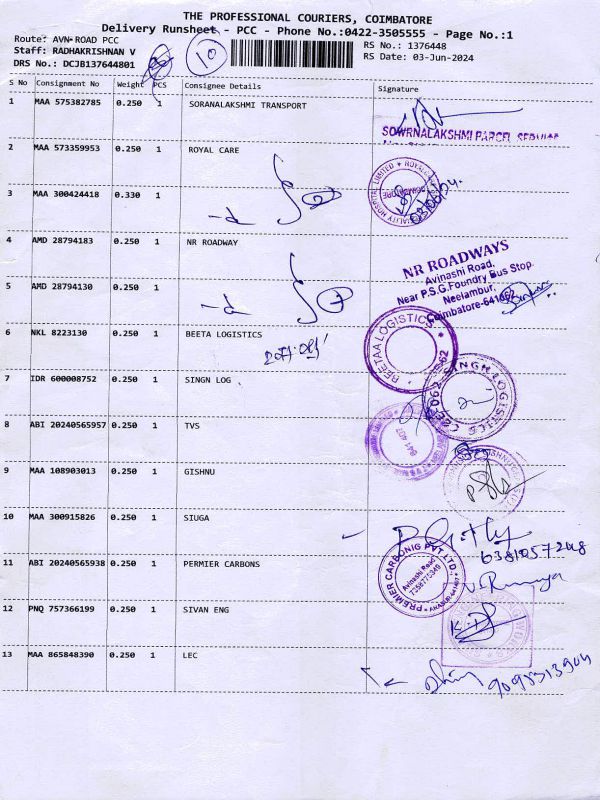 THE PROFESSIONAL COURIERS, COIMBATORE
Delivery Runsheet - PCC - Phone No.:0422-3505555 - Page No.:1
Route: AVN-ROAD PCC
RS No.: 1376448
Staff: RADHAKRISHNAN V
RS Date: 03-Jun-2024
DRS No.: DCJB137644801
10
S No Consignment No Weight PCS Consignee Details Signature
1 MAA 575382785 0.250 1 SORANALAKSHMI TRANSPORT
SOWRNALAKSHMI PARCEL SERVICE
2 MAA 573359953 0.250 1 ROYAL CARE
03/06/24.
3 MAA 300424418 0.330 1
4 AMD 28794183 0.250 1 NR ROADWAY
NR ROADWAYS
Avinashi Road,
Near P.S.G.Foundry Bus Stop
Neelambur,
Coimbatore-641062
5 AMD 28794130 0.250 1
6 NKL 8223130 0.250 1 BEETA LOGISTICS
BEETAA LOGISTICS
7 IDR 600008752 0.250 1 SINGN LOG
SINGN LOGISTICS
8 ABI 20240565957 0.250 1 TVS
641 407
9 MAA 108903013 0.250 1 GISHNU
10 MAA 300915826 0.250 1 SIUGA
6381057248
11 ABI 20240565938 0.250 1 PERMIER CARBONS
PREMIER CARBONIG PVT LTD.
Avinashi Road
12 PNQ 757366199 0.250 1 SIVAN ENG
13 MAA 865848390 0.250 1 LEC